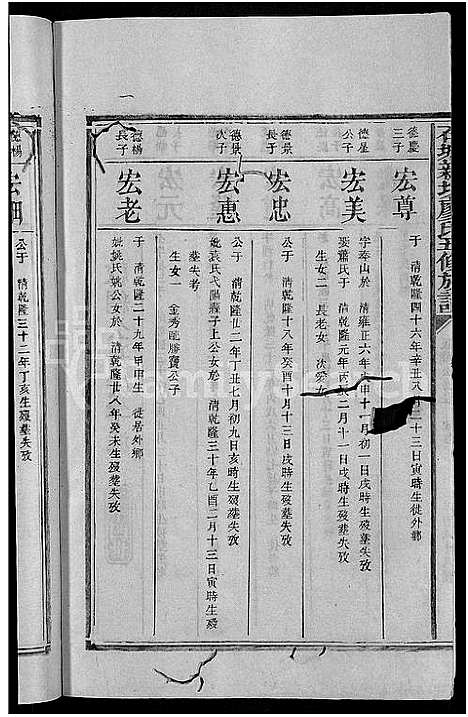 石城新坊廖氏五修族譜
德慶三子
宏尊
于清乾隆四十六年辛丑八月二十三日寅時生徙外鄉
德星公子
宏美
字奉山於清雍正六年戊申十一月初一日戌時生歿葬失攷
娶蕭氏于清乾隆元年丙辰二月十一日戌時生歿葬失攷
生女二 長老女 次愛女
德景長子
宏忠
公于清乾隆十八年癸酉十月十三日戌時生歿葬失攷
德景次子
宏惠
公于清乾隆廿二年丁丑七月初九日亥時生歿葬失攷
妣袁氏 子上公女於清乾隆三十年乙酉二月十三日寅時生歿
葬失考
生女一 金秀配勝寶公子
德楊長子
宏老
于清乾隆二十九年甲申生 徙居外鄉
妣姚氏 公女於清乾隆廿八年癸未生歿葬失攷
德楊
宏
公于清乾隆三十二年丁亥生歿葬失攷